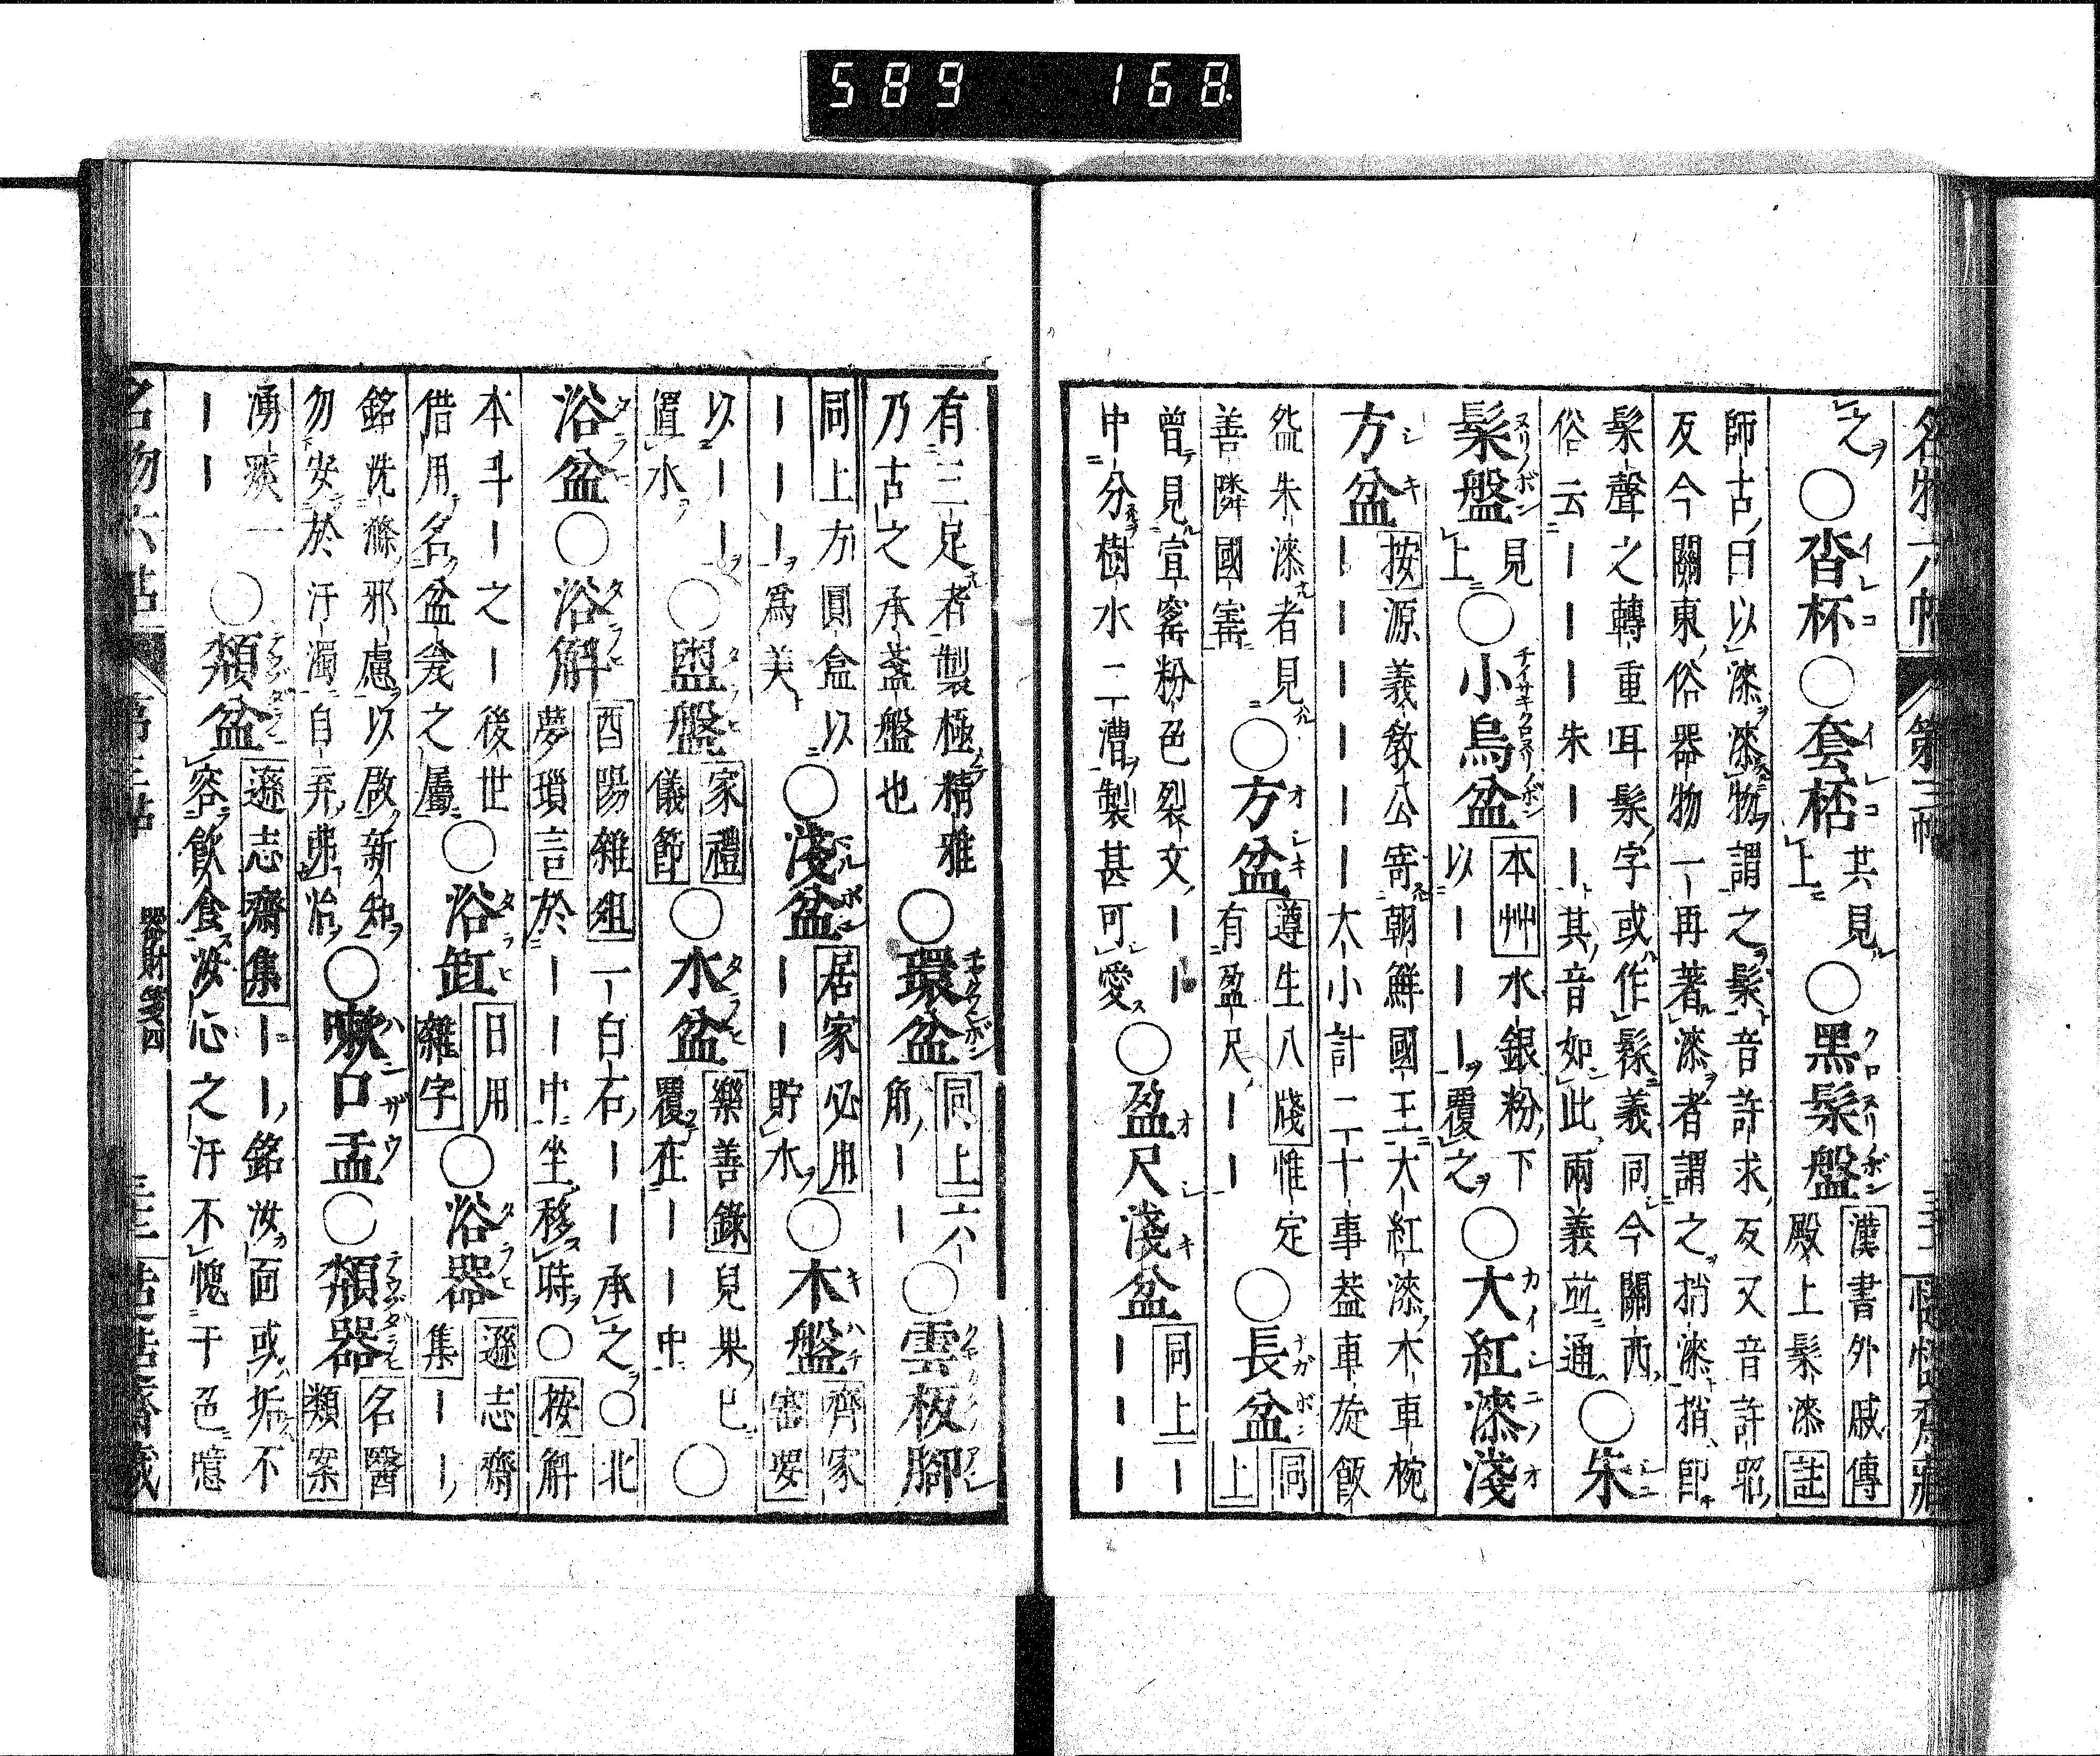 589 168
名物六帖 第三帖
之○沓杯○套桮共見上○黑髹盤漢書外戚傳殿上髹漆註
師古曰以漆漆物謂之髹音許求反又音許昭
反今關東俗器物一再著漆者謂之捎漆捎即
髹聲之轉重耳髹字或作䰍義同今關西
俗云ーーー朱ーー其音如此兩義並通○朱
髹盤見上○小烏盆本艸水銀粉下以ーーー覆之○大紅漆淺
方盆按源義教公寄朝鮮國王大紅漆木車椀ーーーーー大小計二十事葢車旋飯
盤朱漆者見善隣國寶○方盆遵生八牋惟定有盈尺ーー○長盆同上
曾見宣窰粉色裂文ーー
中分樹水二漕製甚可愛○盈尺淺盆同上ーーーー
有三足者製極精雅
乃古之承盞盤也○環盆同上六角ーー○雲板腳
同上方圓盒以ーーー爲美○淺盆居家必用ーー貯水○木盤齊家寶要
以ーー置水○盥盤家禮儀節○水盆樂善錄兒果已覆在ーー中○
浴盆○浴斛酉陽雜俎一白石ーー承之○北夢瑣言於ーー中坐移時○按斛
本斗ーー之ー後世
借用名盆㿻之屬○浴缸日用雜字○浴器遜志齋集ーー
銘洗滌邪慮以啟新知
勿安於汙濁自弃弗治○嗽口盂○頮器名醫類案
湧痰一ーー○頮盆遜志齋集ーー銘汝面或垢不
容飲食汝心之汙不愧于色噫
名物六帖 第三帖 器財箋四